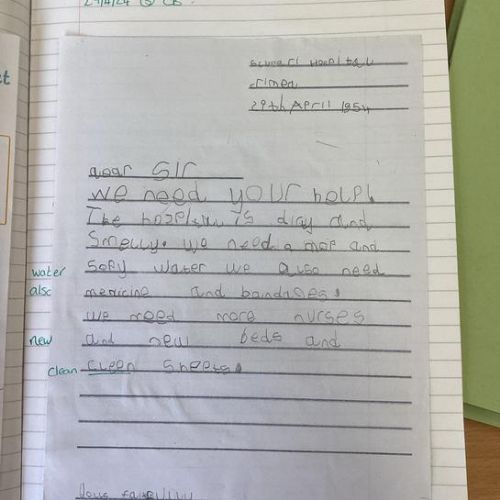 Scuteri Hospital
crimea
29th April 1854
dear Sir
We need your help!
The hospital is diray and
Smelly. we need a mop and
water
Sopy water we also need
also
medicine and bandages.
we need more nurses
new
and new beds and
clean
clean sheets.